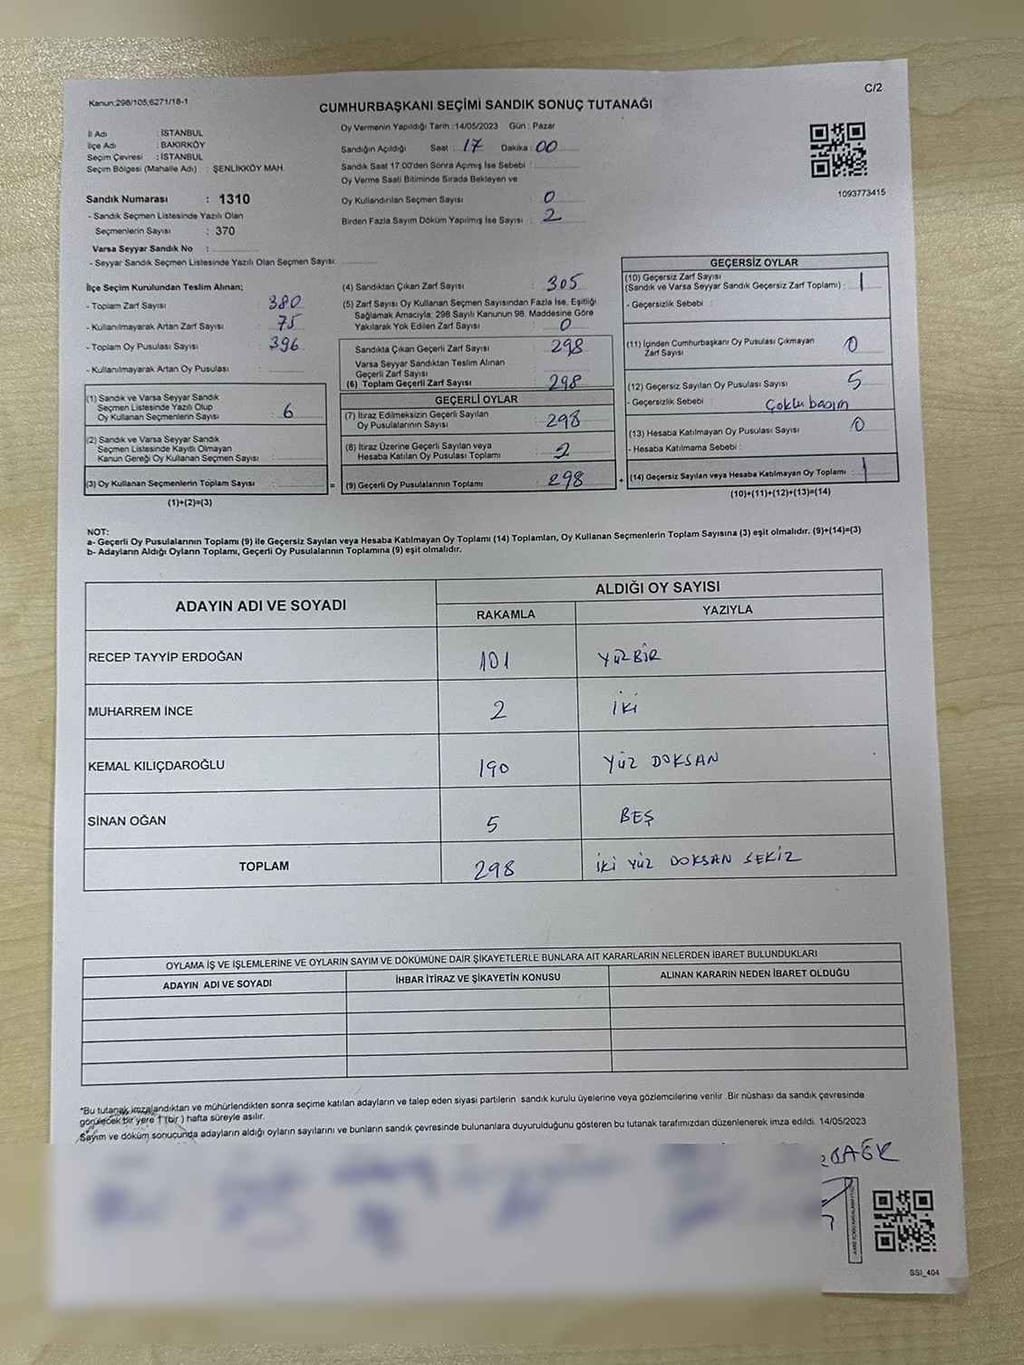 Kanun:298/105,6271/18-1
C/2
CUMHURBAŞKANI SEÇİMİ SANDIK SONUÇ TUTANAĞI
İl Adı : İSTANBUL
İlçe Adı : BAKIRKÖY
Seçim Çevresi : İSTANBUL
Seçim Bölgesi (Mahalle Adı) : ŞENLİKKÖY MAH.
Oy Vermenin Yapıldığı Tarih :14/05/2023 Gün : Pazar
Sandığın Açıldığı Saat : 17 Dakika : 00
Sandık Saat 17:00'den Sonra Açılmış İse Sebebi :
Oy Verme Saati Bitiminde Sırada Bekleyen ve
Oy Kullandırılan Seçmen Sayısı : 0
Birden Fazla Sayım Döküm Yapılmış İse Sayısı : 2
1093773415
Sandık Numarası : 1310
- Sandık Seçmen Listesinde Yazılı Olan
Seçmenlerin Sayısı : 370
Varsa Seyyar Sandık No :
- Seyyar Sandık Seçmen Listesinde Yazılı Olan Seçmen Sayısı:
İlçe Seçim Kurulundan Teslim Alınan;
- Toplam Zarf Sayısı : 380
- Kullanılmayarak Artan Zarf Sayısı : 75
- Toplam Oy Pusulası Sayısı : 396
- Kullanılmayarak Artan Oy Pusulası :
(1) Sandık ve Varsa Seyyar Sandık
Seçmen Listesinde Yazılı Olup
Oy Kullanan Seçmenlerin Sayısı : 6
(2) Sandık ve Varsa Seyyar Sandık
Seçmen Listesinde Kayıtlı Olmayan
Kanun Gereği Oy Kullanan Seçmen Sayısı :
(3) Oy Kullanan Seçmenlerin Toplam Sayısı :
(1)+(2)=(3)
(4) Sandıktan Çıkan Zarf Sayısı : 305
(5) Zarf Sayısı Oy Kullanan Seçmen Sayısından Fazla İse, Eşitliği
Sağlamak Amacıyla; 298 Sayılı Kanunun 98. Maddesine Göre
Yakılarak Yok Edilen Zarf Sayısı : 0
Sandıkta Çıkan Geçerli Zarf Sayısı : 298
Varsa Seyyar Sandıktan Teslim Alınan
Geçerli Zarf Sayısı :
(6) Toplam Geçerli Zarf Sayısı : 298
GEÇERLİ OYLAR
(7) İtiraz Edilmeksizin Geçerli Sayılan
Oy Pusulalarının Sayısı : 298
(8) İtiraz Üzerine Geçerli Sayılan veya
Hesaba Katılan Oy Pusulası Toplamı : 2
= (9) Geçerli Oy Pusulalarının Toplamı : 298
GEÇERSİZ OYLAR
(10) Geçersiz Zarf Sayısı
(Sandık ve Varsa Seyyar Sandık Geçersiz Zarf Toplamı) : 1
- Geçersizlik Sebebi :
(11) İçinden Cumhurbaşkanı Oy Pusulası Çıkmayan
Zarf Sayısı : 0
(12) Geçersiz Sayılan Oy Pusulası Sayısı : 5
- Geçersizlik Sebebi : Çoklu basım
(13) Hesaba Katılmayan Oy Pusulası Sayısı : 0
- Hesaba Katılmama Sebebi :
+ (14) Geçersiz Sayılan veya Hesaba Katılmayan Oy Toplamı : 1
(10)+(11)+(12)+(13)=(14)
NOT:
a- Geçerli Oy Pusulalarının Toplamı (9) ile Geçersiz Sayılan veya Hesaba Katılmayan Oy Toplamı (14) Toplamları, Oy Kullanan Seçmenlerin Toplam Sayısına (3) eşit olmalıdır. (9)+(14)=(3)
b- Adayların Aldığı Oyların Toplamı, Geçerli Oy Pusulalarının Toplamına (9) eşit olmalıdır.
ADAYIN ADI VE SOYADI
ALDIĞI OY SAYISI
RAKAMLA YAZIYLA
RECEP TAYYİP ERDOĞAN 101 YÜZBİR
MUHARREM İNCE 2 İKİ
KEMAL KILIÇDAROĞLU 190 YÜZ DOKSAN
SİNAN OĞAN 5 BEŞ
TOPLAM 298 İKİ YÜZ DOKSAN SEKİZ
OYLAMA İŞ VE İŞLEMLERİNE VE OYLARIN SAYIM VE DÖKÜMÜNE DAİR ŞİKAYETLERLE BUNLARA AİT KARARLARIN NELERDEN İBARET BULUNDUKLARI
ADAYIN ADI VE SOYADI İHBAR İTİRAZ VE ŞİKAYETİN KONUSU ALINAN KARARIN NEDEN İBARET OLDUĞU
*Bu tutanak imzalandıktan ve mühürlendikten sonra seçime katılan adayların ve talep eden siyasi partilerin sandık kurulu üyelerine veya gözlemcilerine verilir .Bir nüshası da sandık çevresinde
görülecek bir yere 1 (bir ) hafta süreyle asılır.
Sayım ve döküm sonucunda adayların aldığı oyların sayılarını ve bunların sandık çevresinde bulunanlara duyurulduğunu gösteren bu tutanak tarafımızdan düzenlenerek imza edildi. 14/05/2023
SSI_404